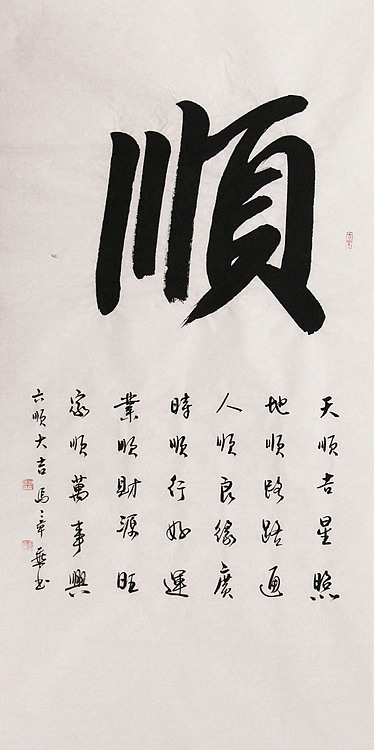 順
天順吉星照
地順路路通
人順良緣廣
時順行好運
業順財源旺
家順萬事興
六順大吉 馬